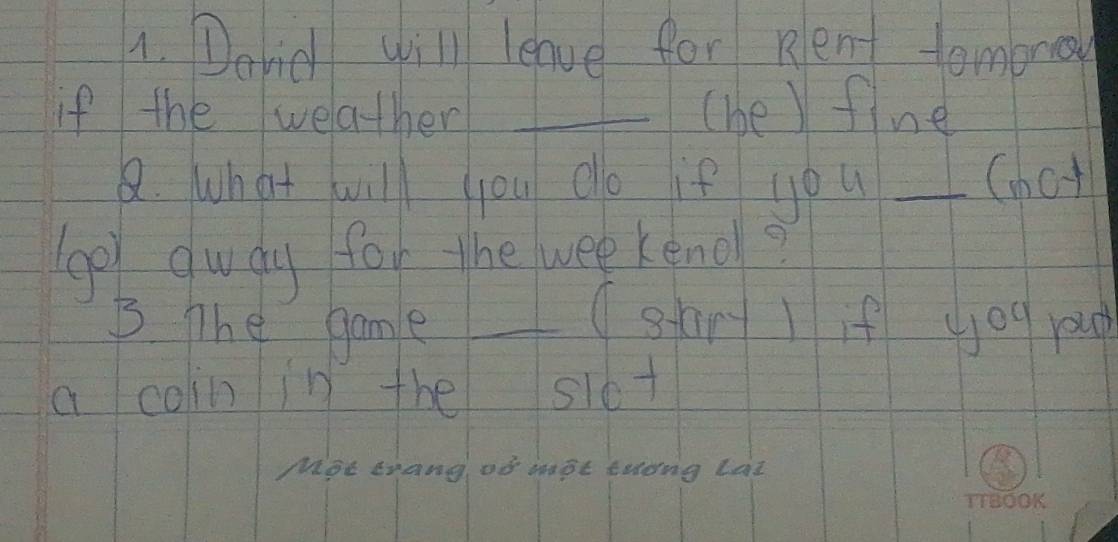 1. David will leave for Rent tomorrow
if the weather ____ (be) fine
2. What will you do if you ___ (not
(go) away for the weekend?
3 The game ___ (start) if you put
a coin in the slot
Một trang vở một tương lai
TTBOOK